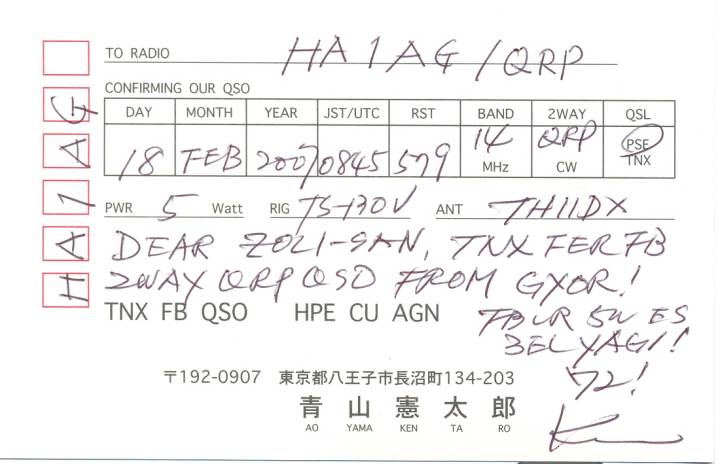 TO RADIO HA1AG/QRP
CONFIRMING OUR QSO
DAY MONTH YEAR JST/UTC RST BAND 2WAY QSL
18 FEB 2007 0845 579 14 MHz QRP CW PSE TNX
PWR 5 Watt RIG TS-130V ANT TH11DX
DEAR ZOLI-SAN, TNX FER FB
2WAY QRP QSO FROM GYOR!
TNX FB QSO HPE CU AGN
FB UR 5W ES
3EL YAGI!
72!
〒192-0907 東京都八王子市長沼町134-203
青山憲太郎
AO YAMA KEN TA RO
HA1AG